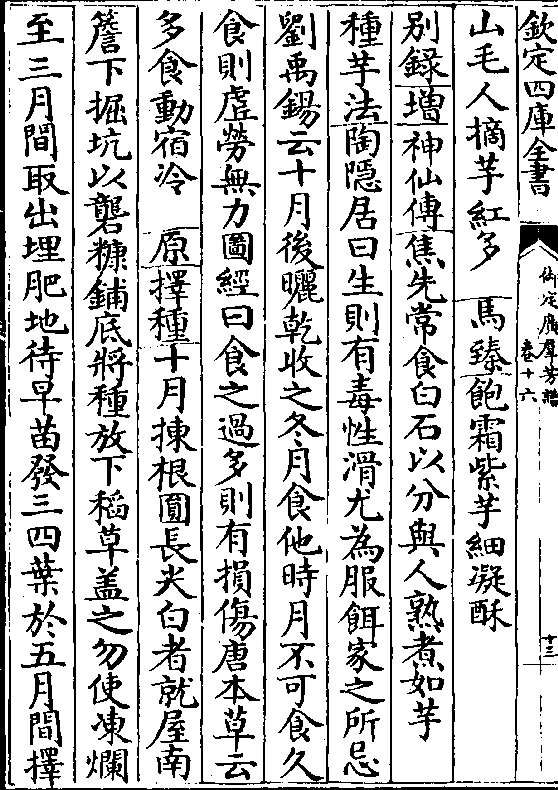 欽定四庫全書
御定廣羣芳譜
卷十六
十三
山毛人摘芋紅多　馬臻飽霜紫芋細凝酥
别録增神仙傳焦先常食白石以分與人熟煮如芋
種芋法陶隱居曰生則有毒性滑尤為服餌家之所忌
劉禹錫云十月後曬乾收之冬月食他時月不可食久
食則虛勞無力圖經曰食之過多則有損傷唐本草云
多食動宿冷　原擇種十月揀根圓長尖白者就屋南
簷下掘坑以礱糠鋪底將種放下稻草盖之勿使凍爛
至三月間取出埋肥地待早苗發三四葉於五月間擇